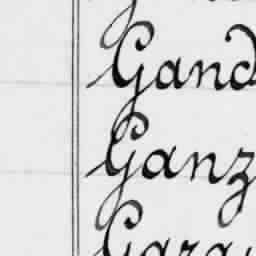 Gand
Ganz
Gara